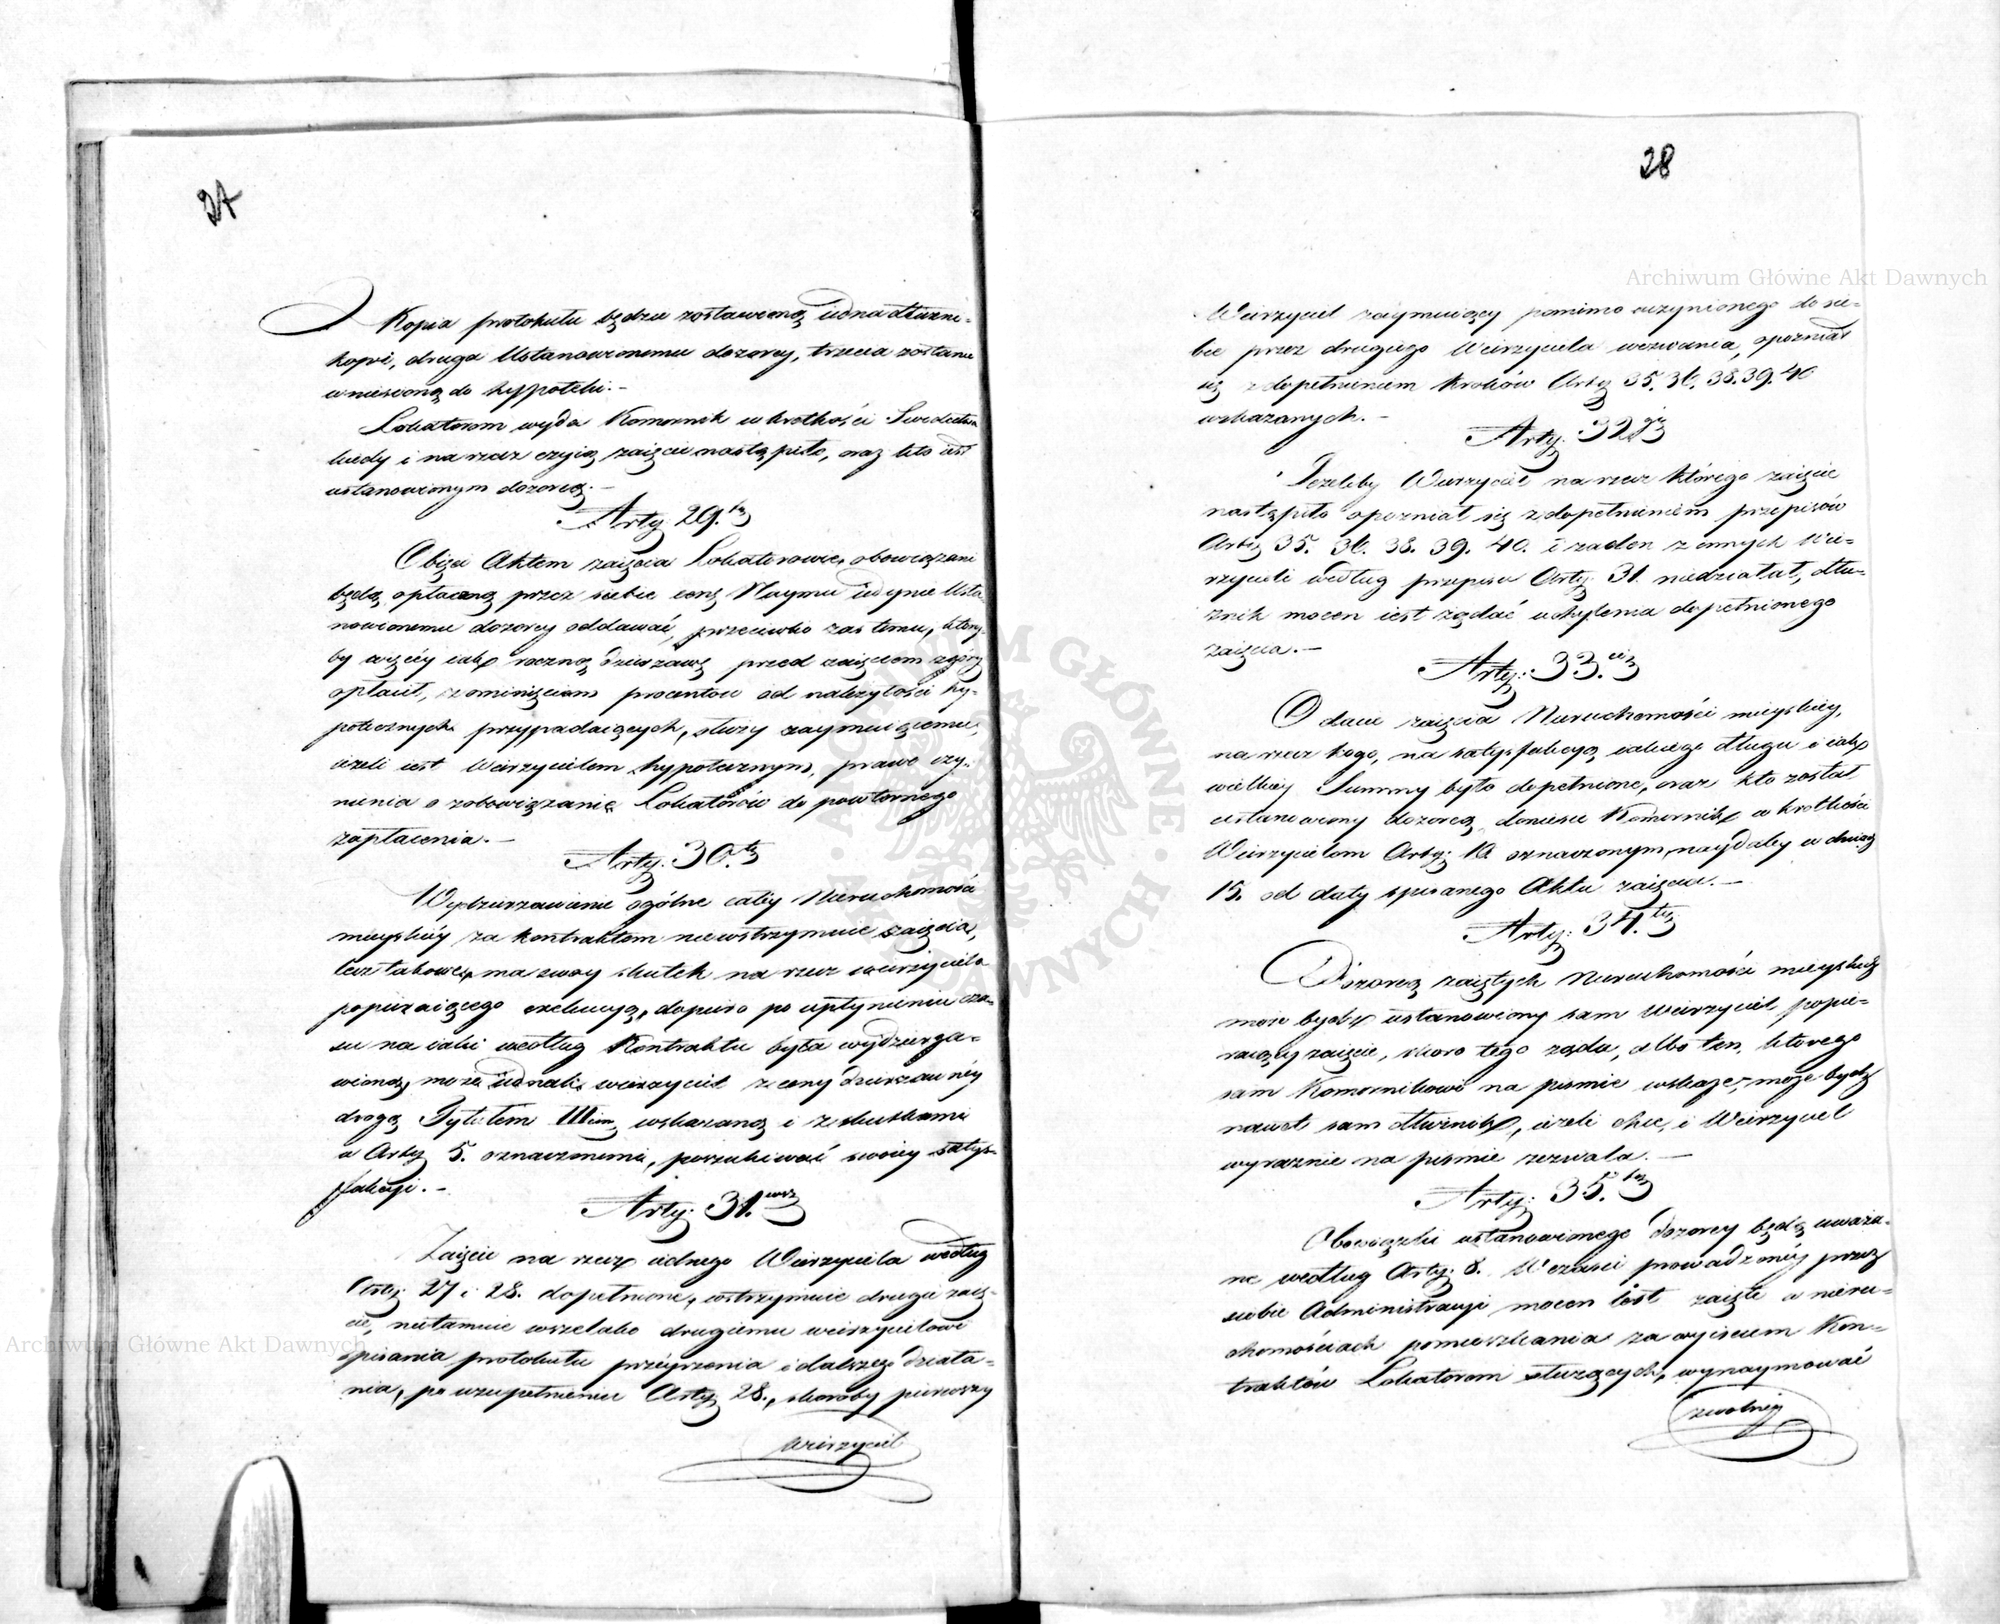 27
Kopia protokułu będzie zostawioną iedna dłużni-
kowi, druga Ustanowionemu dozorcy, trzecia zostanie
wniesioną do hyppoteki.-
Lokatorom wyda Komornik w krotkości Swiadectwa
kiedy i na rzecz czyią zaięcie nastąpiło, oraz kto iest
ustanowionym dozorcą.-
Arty. 29.ty
Obięci Aktem zaięcia Lokatorowie obowiązani
będą, opłacaną przez siebie cenę Naymu iedynie Usta-
nowionemu dozorcy oddawać, przeciwko zaś temu, który-
by więcéy iak roczną dzierżawę przed zaięciem z góry
opłacił, z ominięciem procentów od należytości hy-
potecznych przypadaiących, służy zaymuiącemu,
ieżeli iest Wierzycielem hypotecznym, prawo czy-
nienia o zobowiązanie Lokatorów do powtórnego
zapłacenia.-
Arty. 30.ty
Wydzierżawienie ogólne całéy Nieruchomości
mieyskiéy za kontraktem niewstrzymuie zaięcia,
lecz takowe, ma swoy skutek na rzecz wierzyciela
popieraiącego exekucyą, dopiero po upłynieniu cza-
su na iaki według Kontraktu była wydzierża-
wioną, może iednak wierzyciel z ceny dzierżawnéy
drogą Tytułem IIIcim wskazaną i z skutkami
w Arty 5. oznaczonemi, poszukiwać swoiey satys-
fakcyi.-
Arty. 31.wszy
Zaięcie na rzecz iednego Wierzyciela według
Arty. 27 i 28. dopełnione, wstrzymuie drugie zaię-
cie, nietamuie wszelako drugiemu wierzycielowi
spisania protokułu przéyrzenia i dalszego działa-
nia, po uzupełnieniu Arty 28., skoroby pierwszy
wierzyciel
28
Wierzyciel zaymuiący pomimo uczynionego do sie-
bie przez drugiego Wierzyciela wezwania, opoźniał
się z dopełnieniem kroków Arty 35. 36. 38. 39. 40
wskazanych.-
Arty. 32gi
Jeżeliby Wierzyciel na rzecz którego zaięcie
nastąpiło opoźniał się z dopełnieniem przepisów
Arty 35. 36. 38. 39. 40. i żaden z innych Wie-
rzycieli według przepisu Arty. 31. niedziałał, dłu-
żnik mocen iest żądać uchylenia dopełnionego
zaięcia.-
Arty. 33.ci
O dacie zaięcia Nieruchomości mieyskiéy,
na rzecz kogo, na satysfakcyą iakiego długu i iak
wielkiey Summy było dopełnione, oraz kto został
ustanowiony dozorcą, doniesie Komornik w krotkości
Wierzycielom Arty: 10 oznaczonym, naydaléy w dniach
15. od daty spisanego Aktu zaięcia.-
Arty. 34.ty
Dozorcą zaiętych Nieruchomości mieyskich
może bydź ustanowiony sam Wierzyciel popie-
raiący zaięcie, skoro tego żąda, albo ten, którego
sam Komornikowi na piśmie wskaże, może bydź
nawet sam dłużnik, ieżeli chce, i Wierzyciel
wyraznie na piśmie zezwala.-
Arty. 35.ty
Obowiązki ustanowionego Dozorcy będą uważa-
ne według Arty. 8. W czasie prowadzonéy przez
siebie Administracyi mocen iest zaięte w nieru-
chomościach pomieszkania za wyiściem Kon-
traktów Lokatorom służących, wynaymować
zwolniey
Archiwum Główne Akt Dawnych
Archiwum Główne Akt Dawnych